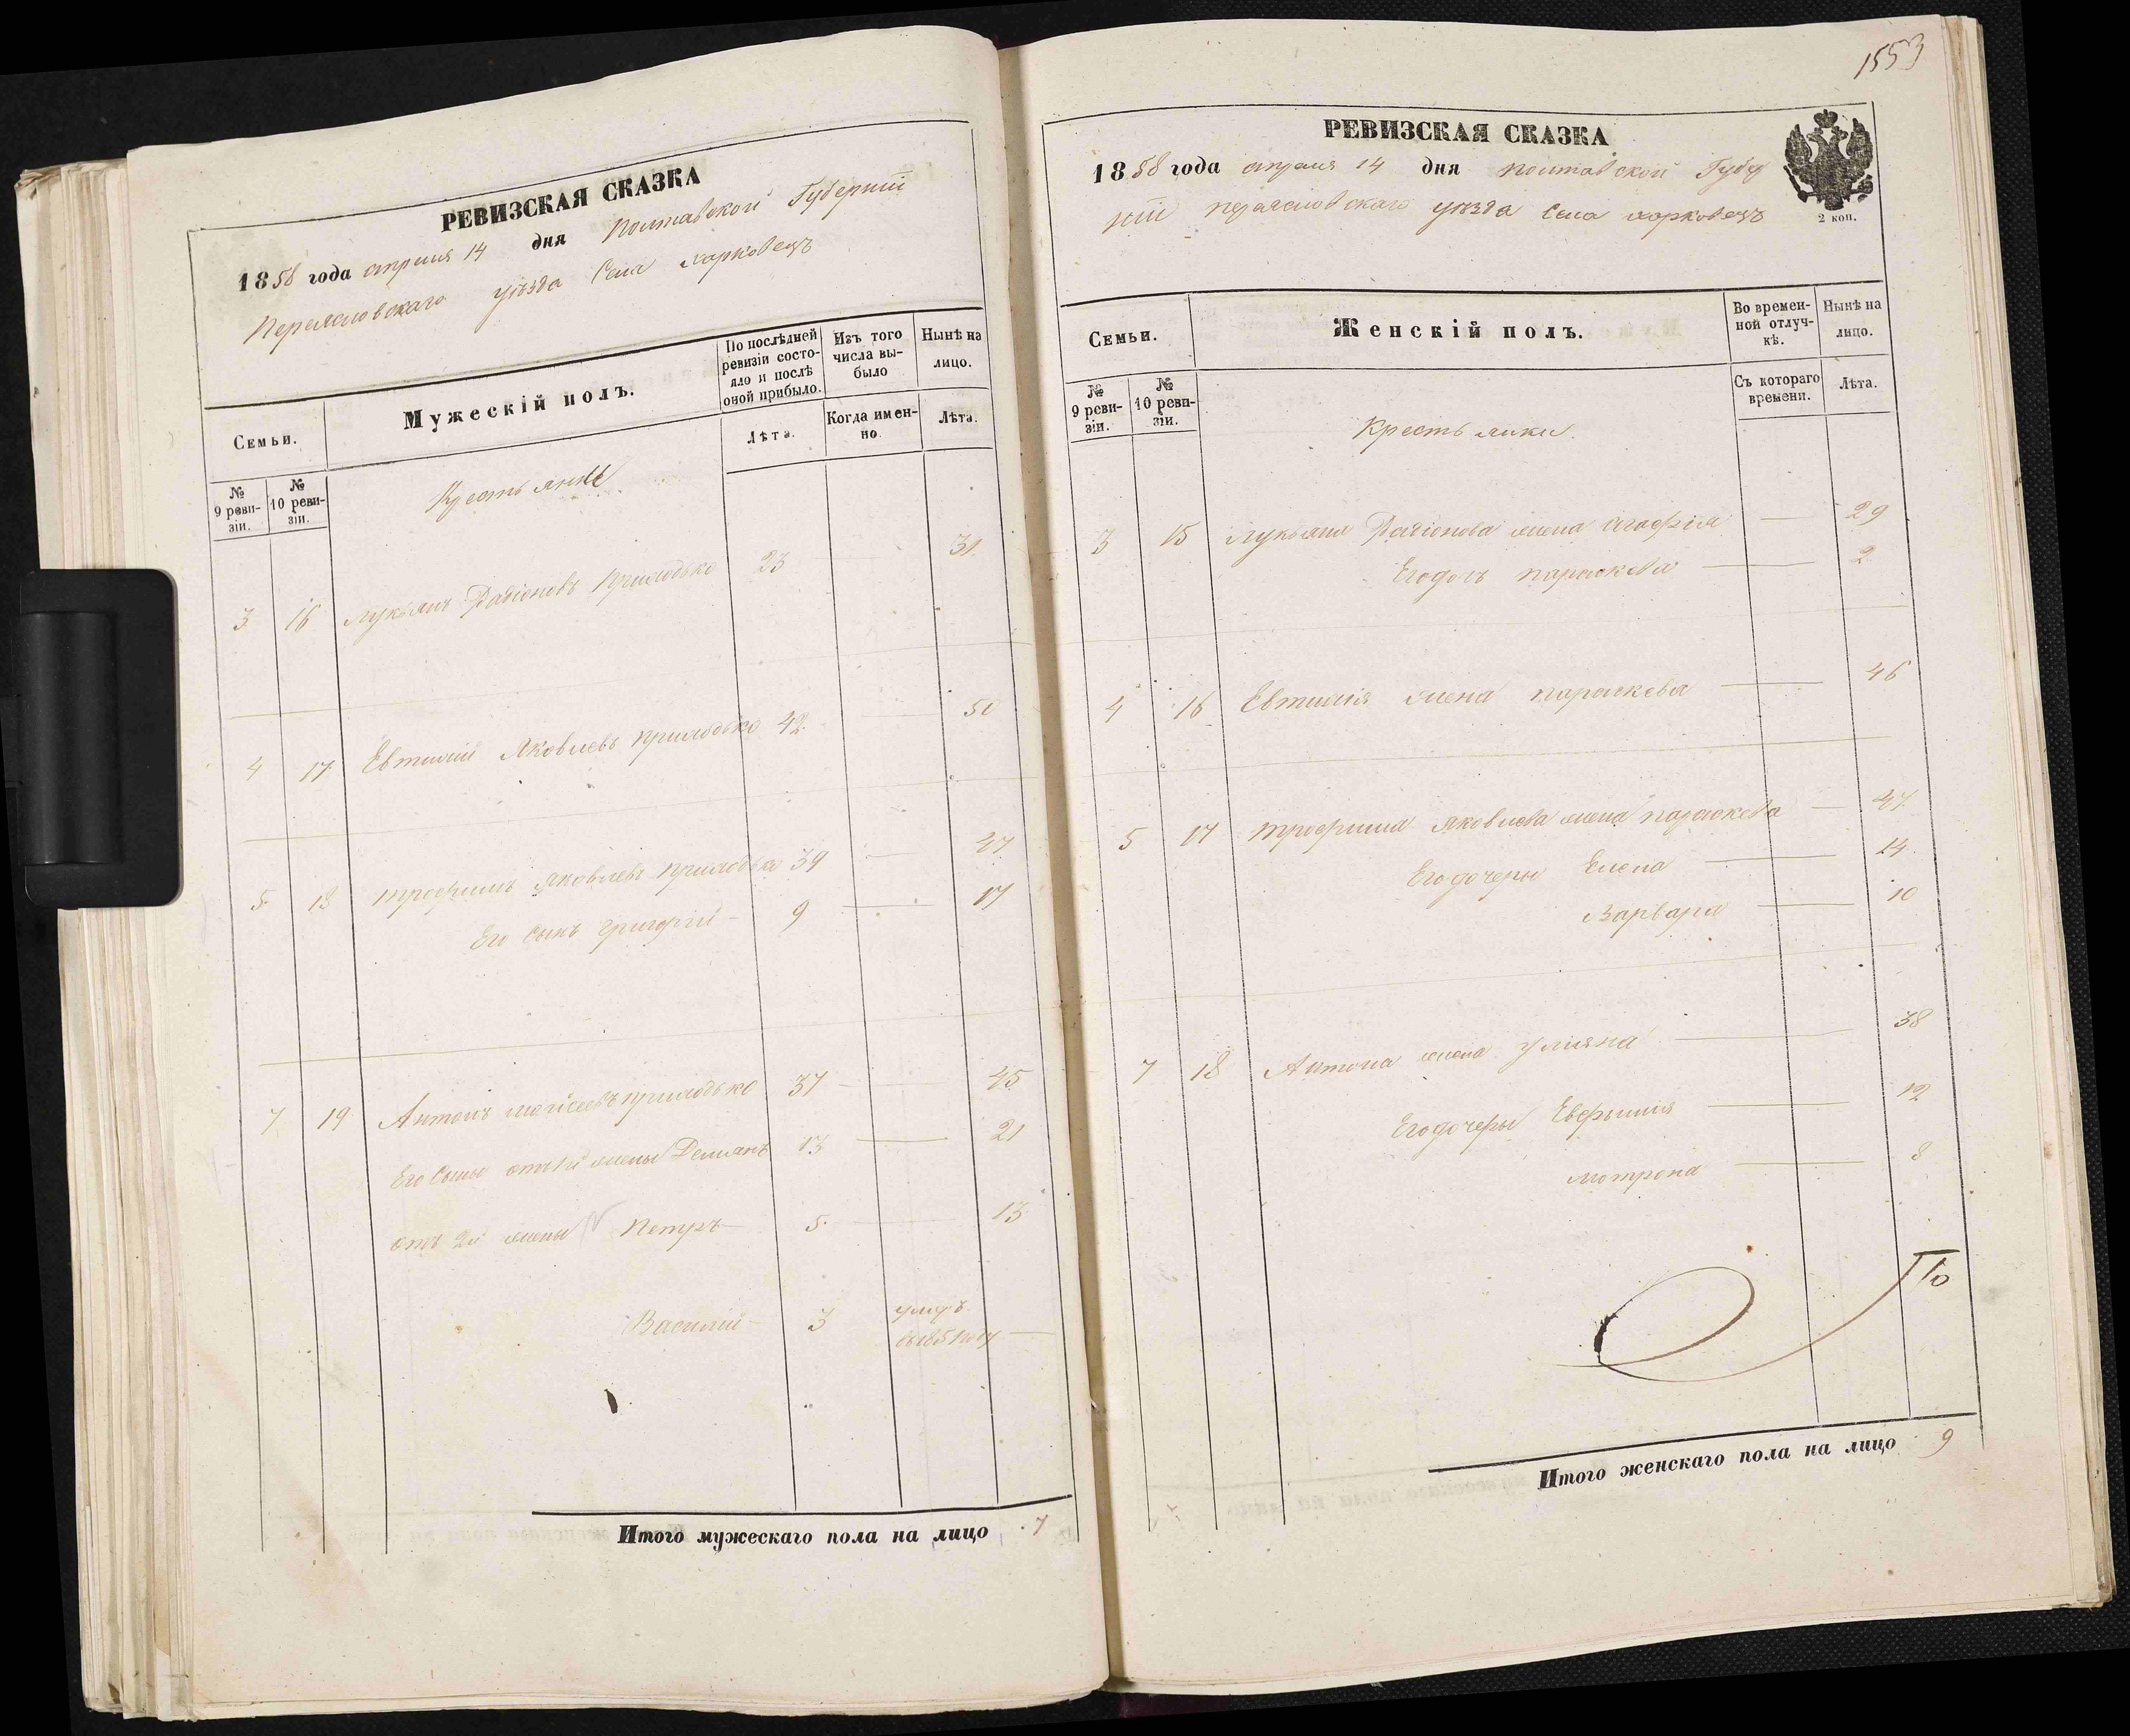 РЕВИЗСКАЯ СКАЗКА
1858 года апреля 14 дня Полтавской Губернiи
Переясловскаго уѣзда Села Харковецъ
Семьи.
Мужескiй полъ.
По послѣдней ревизiи состояло и послѣ оной прибыло.
Изъ того числа выбыло
Нынѣ на лицо.
№ 9 ревизiи.
№ 10 ревизiи.
Лѣта.
Когда именно.
Лѣта.
Крестьяне
3 16 Лукьянъ Радiоновъ Приходько 23 — 31
4 17 Евтимiй Яковлевъ Приходько 42 — 50
5 18 Трофимъ Яковлевъ Приходько 39 — 47
Его Сынъ Григорiй — 9 — 17
7 19 Антонъ Мойсеевъ Приходько 37 — 45
Его Сыны отъ 1й жены Демянъ 13 — 21
отъ 2й жены Петръ 5 — 13
Василiй — 3 —
Итого мужескаго пола на лицо 7
1553
РЕВИЗСКАЯ СКАЗКА
1858 года апреля 14 дня Полтавской Губер
нiи Переясловскаго уѣзда Села Харковецъ
2 коп.
Семьи.
Женскiй полъ.
Во временной отлучкѣ.
Нынѣ на лицо.
№ 9 ревизiи.
№ 10 ревизiи.
Съ котораго времени.
Лѣта.
Крестьянки.
3 15 Лукьяна Радiонова жена Агафiя — 29
Его дочь Параскева — 2
4 16 Евтимiя жена Параскева — 46
5 17 Трофима Яковлева жена Параскева — 47
Его дочери Елена — 14
Варвара — 10
7 18 Антона жена Улияна — 38
Его дочеры Ефвимiя — 12
Мотрона — 8
По
Итого женскаго пола на лицо 9